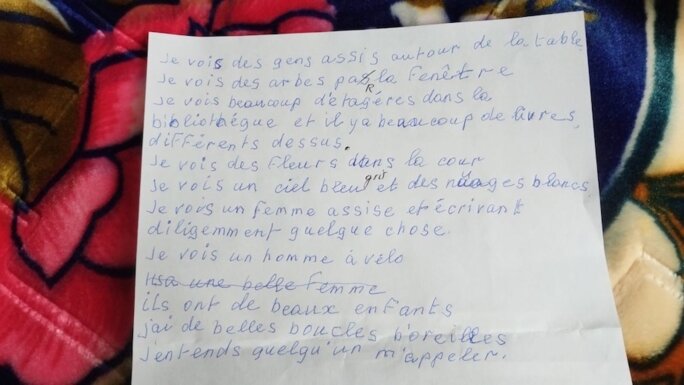 Je vois des gens assis autour de la table
Je vois des arbes par la Fenêtre
Je vois beaucoup d'etagéres dans la
bibliothégue et il ya beaucoup de livres
différents dessus.
Je vois des Fleurs dans la cour
Je vois un ciel bleu gris et des nuages blancs
Je vois un Femme assise et écrivant
diligemment quelgue chose.
Je vois un homme à vélo
Il sa une belle Femme
ils ont de beaux enfants
j'ai de belles boucles b'oreilles
J'entends quelqu'un m'appeler.